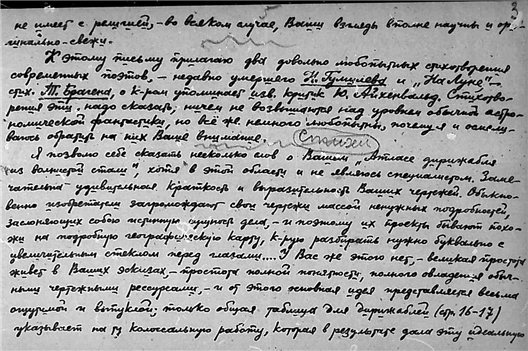 3
не имеет с религией, – во всяком случае, Ваши взгляды вполне научны и ори-
гинально-свежи.
К этому письму прилагаю два довольно любопытных стихотворения
современных поэтов, – недавно умершего Н. Гумилева и „На Луне" –
стих. Т. Ефагена, о к-ром упоминает изв. критик Ю. Айхенвальд. Стихотво-
рения эти, надо сказать, ничем не возвышаются над уровнем обычной астро-
номической фантастики, но всё же немного любопытны, почему я и осмели-
ваюсь обратить на них Ваше внимание.
Я позволю себе сказать несколько слов о Вашем „Атласе дирижабля
из волнистой стали", хотя в этой области и не являюсь специалистом. Заме-
чательна удивительная краткость и выразительность Ваших чертежей. Обыкно-
венно изобретатели загромождают свои чертежи массой ненужных подробностей,
заслоняющих собою истинную сущность дела, – и поэтому их проекты бывают похо-
жи на подробную географическую карту, к-рую разбирать нужно буквально с
увеличительным стеклом перед глазами.... У Вас же этого нет, – великая простота
живёт в Ваших эскизах, – простота полной понятности, полного овладения обыч-
ными чертежными рессурсами, – и от этого основная идея представляется весьма
ощутимой и выпуклой; только общая таблица для дирижаблей (стр. 16-17)
указывает на ту колоссальную работу, которая в результате дала эту идеальную